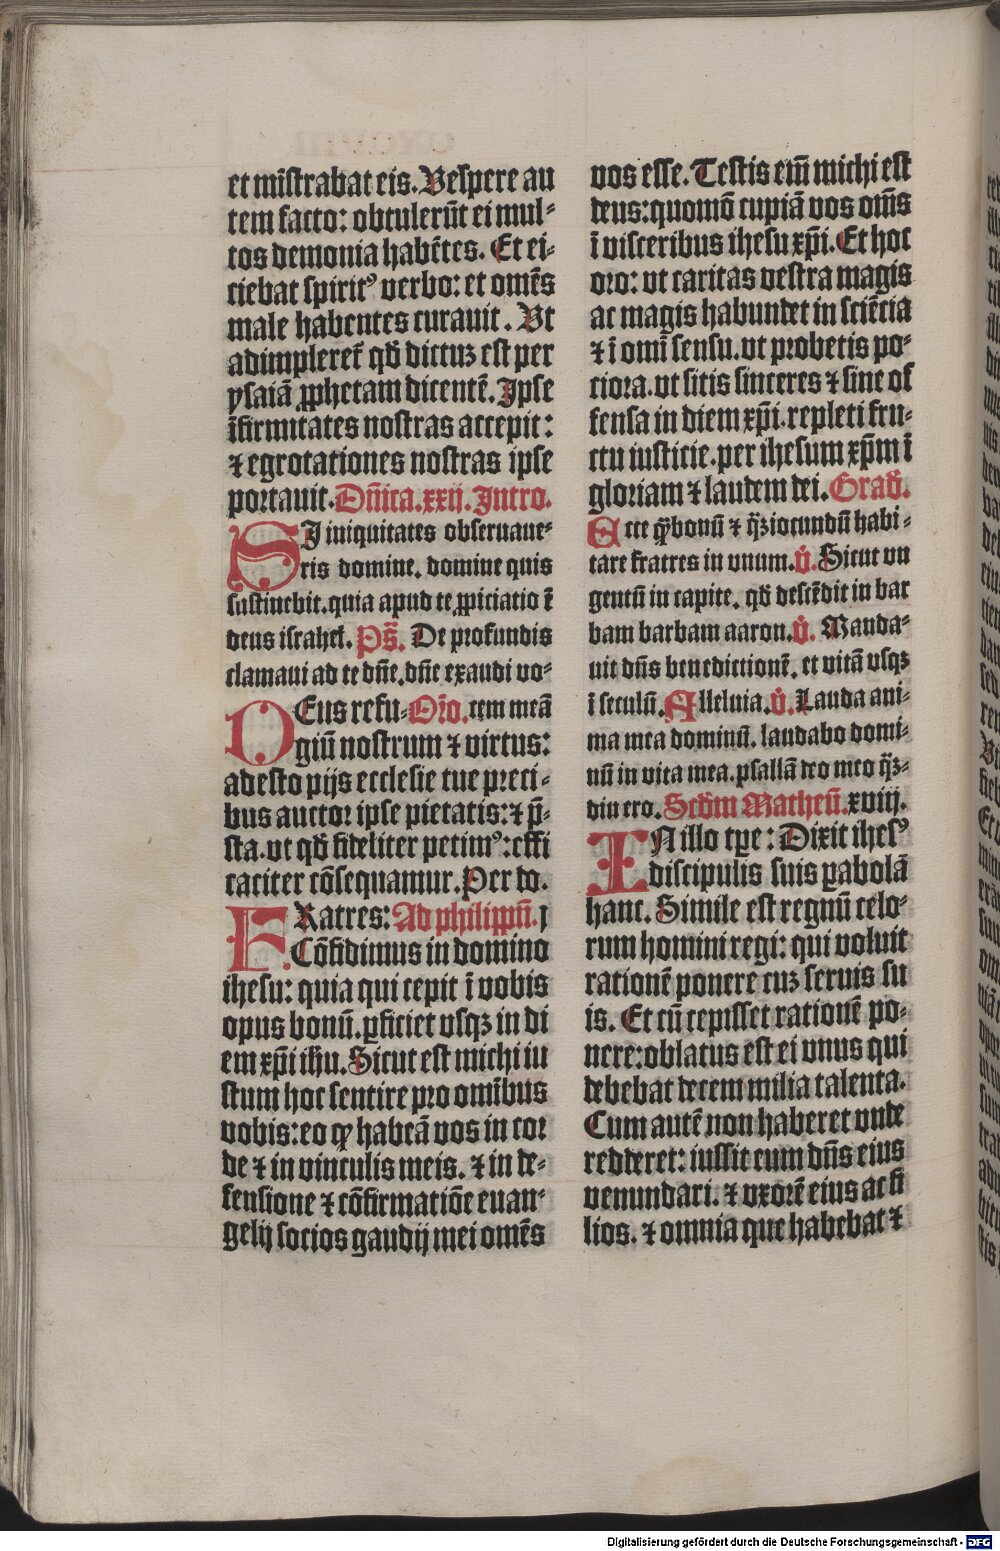 et mīstrabat eis. Vespere au
tem facto: obtulerūt ei mul-
tos demonia habētes. Et ei-
ciebat spiritꝰ verbo: et omēs
male habentes curauit. Vt
adimpleret̄ qđ dictuꝫ est per
ysaiā ꝓphetam dicentē. Ipse
īfirmitates nostras accepit:
⁊ egrotationes nostras ipse
portauit. Dn̄ica. xxij. Intro.
SI iniquitates obseruaue-
ris domine. domine quis
sustinebit. quia apud te ꝓpiciatio ē
deus israhel. Ps̄. De profundis
clamaui ad te dn̄e. dn̄e exaudi vo-
DEus refu- Oro. cem meā
giū nostrum ⁊ virtus:
adesto pijs ecclesie tue preci-
bus auctor ipse pietatis: ⁊ p̄-
sta. vt qđ fideliter petimꝰ: effi
caciter cōsequamur. Per do.
FRatres: Ad philippeñ. j
Cōfidimus in domino
ihesu: quia qui cepit ī vobis
opus bonū. ꝑficiet vsqꝫ in di
em xp̄i ih̄u. Sicut est michi iu
stum hoc sentire pro omībus
vobis: eo ꝙ habeā vos in cor
de ⁊ in vinculis meis. ⁊ in de-
fensione ⁊ cōfirmatiōe euan-
gelij socios gaudij mei omēs
vos esse. Testis em̄ michi est
deus: quomō cupiā vos om̄s
ī visceribus ihesu xp̄i. Et hoc
oro: vt caritas vestra magis
ac magis habundet in sciētia
⁊ ī omī sensu. vt probetis po-
ciora. vt sitis sinceres ⁊ sine of
fensa in diem xp̄i. repleti fru-
ctu iusticie. per ihesum xp̄m ī
gloriam ⁊ laudem dei. Građ.
Ecce ꝙ̄ bonū ⁊ q̄ꝫ iocundū habi-
tare fratres in vnum. v̊. Sicut vn
gentū in capite. qđ descēdit in bar
bam barbam aaron. v̊. Manda-
uit dn̄s benedictionē. et vitā vsqꝫ
ī seculū. Alleluia. v̊. Lauda ani-
ma mea dominū. laudabo domi-
nū in vita mea. psallā deo meo q̄ꝫ-
diu ero. Scđm Matheū. xviij.
IN illo tꝑe: Dixit ihesꝰ
discipulis suis ꝑabolā
hanc. Simile est regnū celo-
rum homini regi: qui voluit
rationē ponere cuꝫ seruis su
is. Et cū cepisset rationē po-
nere: oblatus est ei vnus qui
debebat decem milia talenta.
Cum autē non haberet vnde
redderet: iussit eum dn̄s eius
venundari. ⁊ vxorē eius ac fi
lios. ⁊ omnia que habebat ⁊
Digitalisierung gefördert durch die Deutsche Forschungsgemeinschaft - DFG